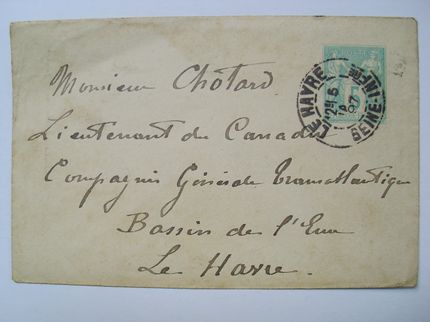 Monsieur Chotard
Lieutenant de Canada
Compagnie Générale Transatlantique
Bassin de l'Eure
Le Havre.
LE HAVRE
SEINE-INFRE
97
5